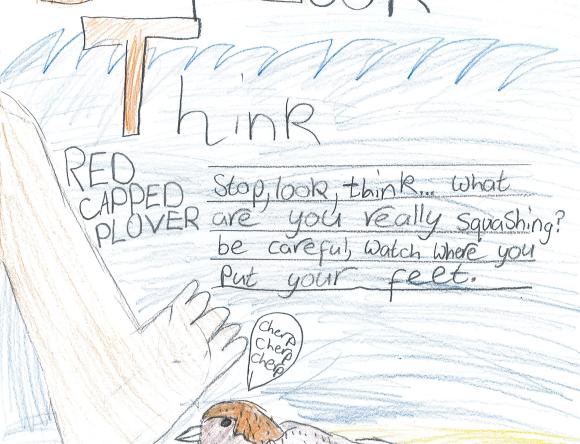 Look
Think
RED
CAPPED
PLOVER
Stop, look, think... what
are you really squashing?
be careful, watch where you
put your feet.
cherp
cherp
cherp